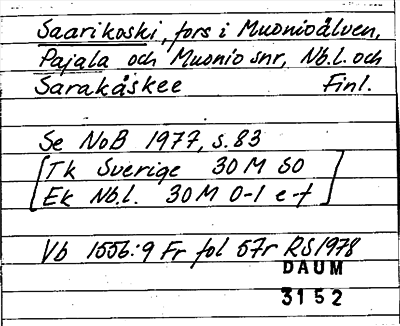 Saarikoski, fors i Muonioälven,
Pajala och Muonio snr, Nb.l. och
Sarakåskee Finl.
Se NoB 1977, s. 83
[Tk Sverige 30 M SO]
[Ek Nb.l. 30 M 0-1 e-f]
Vb 1556:9 Fr fol 57r RS 1978
DAUM
3152